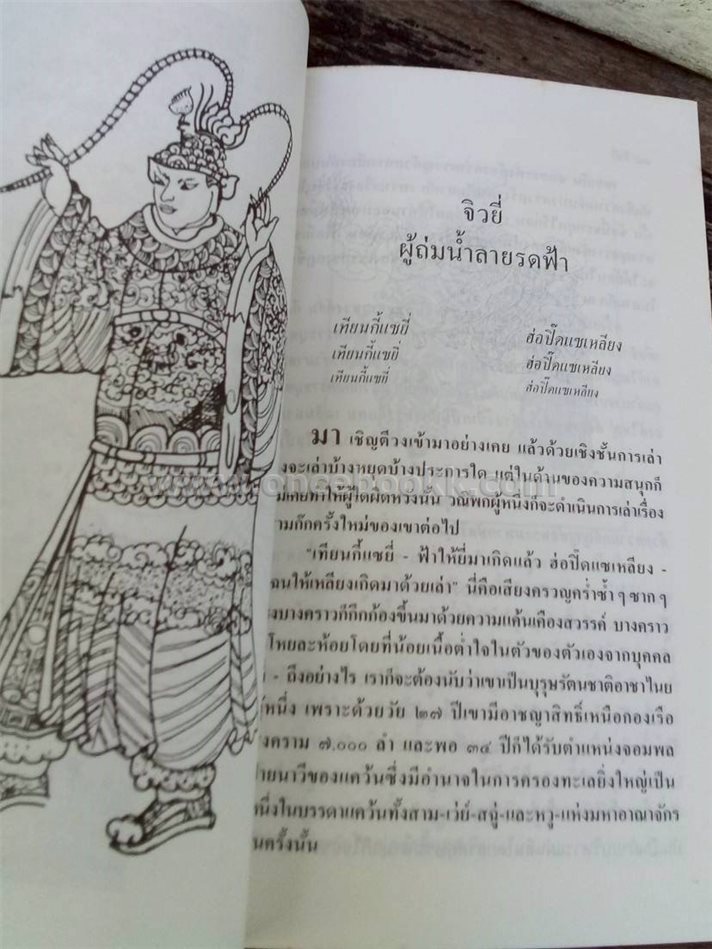 จิวยี่
ผู้ถ่มน้ำลายรดฟ้า
เทียนกี้แซยี่ ฮ่อปิ๊ดแซเหลียง
เทียนกี้แซยี่ ฮ่อปิ๊ดแซเหลียง
เทียนกี้แซยี่ ฮ่อปิ๊ดแซเหลียง
มา เชิญตีวงเข้ามาอย่างเคย แล้วด้วยเชิงชั้นการเล่า
งจะเล่าบ้างหยุดบ้างประการใด แต่ในด้านของความสนุกก็
มเคยทำให้ผู้ใดผิดหวังนั้น วณิพกผู้หนึ่งก็จะดำเนินการเล่าเรื่อง
ามก๊กครั้งใหม่ของเขาต่อไป
"เทียนกี้แซยี่ - ฟ้าให้ยี่มาเกิดแล้ว ฮ่อปิ๊ดแซเหลียง -
ฉนให้เหลียงเกิดมาด้วยเล่า" นี่คือเสียงครวญคร่ำซ้ำ ๆ ซาก ๆ
งบางคราวก็กึกก้องขึ้นมาด้วยความแค้นเคืองสวรรค์ บางคราว
โหยละห้อยโดยที่น้อยเนื้อต่ำใจในตัวของตัวเองจากบุคคล
- ถึงอย่างไร เราก็จะต้องนับว่าเขาเป็นบุรุษรัตนชาติอาชาไนย
หนึ่ง เพราะด้วยวัย ๒๗ ปีเขามีอาชญาสิทธิ์เหนือกองเรือ
งคราม ๗.๐๐๐ ลำ และพอ ๓๔ ปีก็ได้รับตำแหน่งจอมพล
ายนาวีของแคว้นซึ่งมีอำนาจในการครองทะเลยิ่งใหญ่เป็น
หนึ่งในบรรดาแคว้นทั้งสาม-เว่ย์-สฉู่-และหวู-แห่งมหาอาณาจักร
นครั้งนั้น